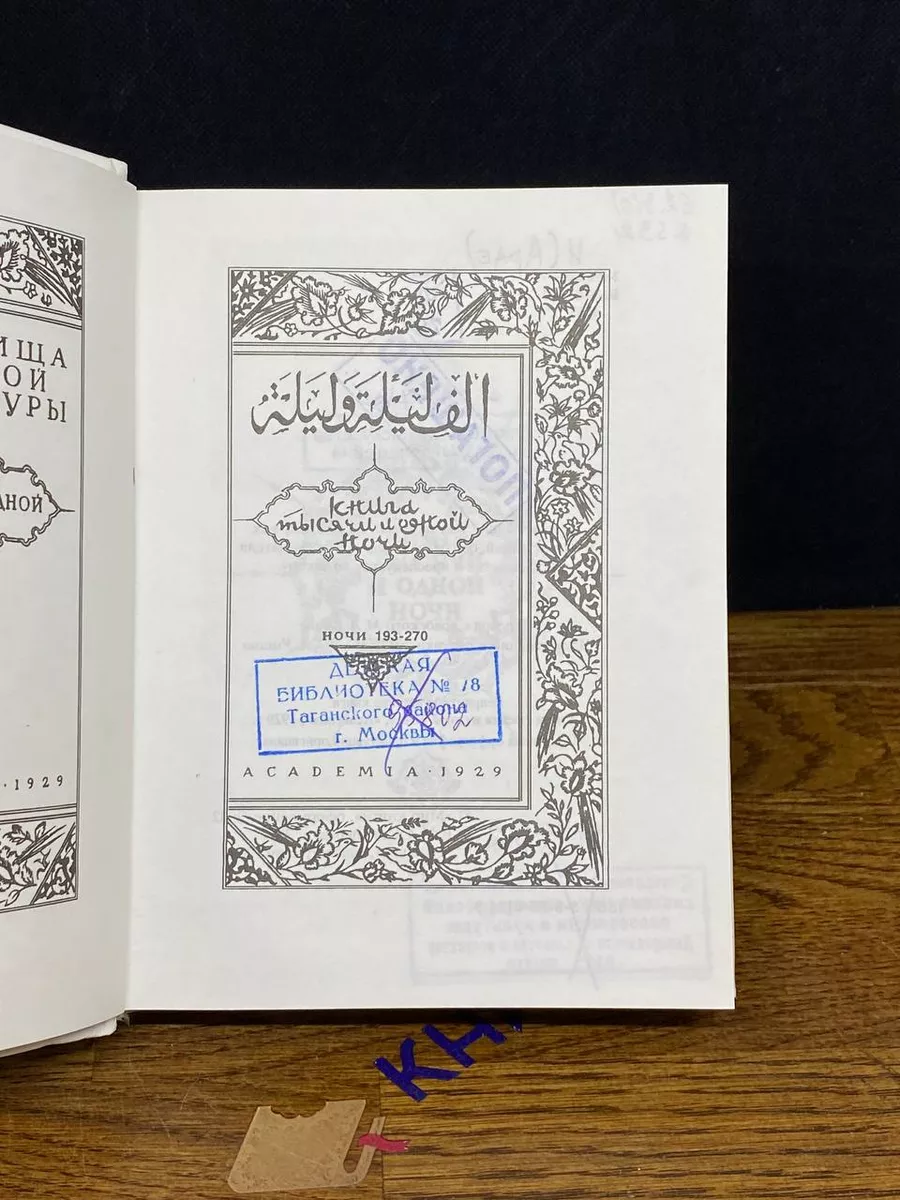 ИЩА
ОЙ
УРЫ
ДНОЙ
· 1929
الف ليلة وليلة
Книга
тысячи и одной
ночи
НОЧИ 193-270
БИБЛИОТЕКА № 18
Таганского района
г. Москвы
ACADEMIA · 1929
КН